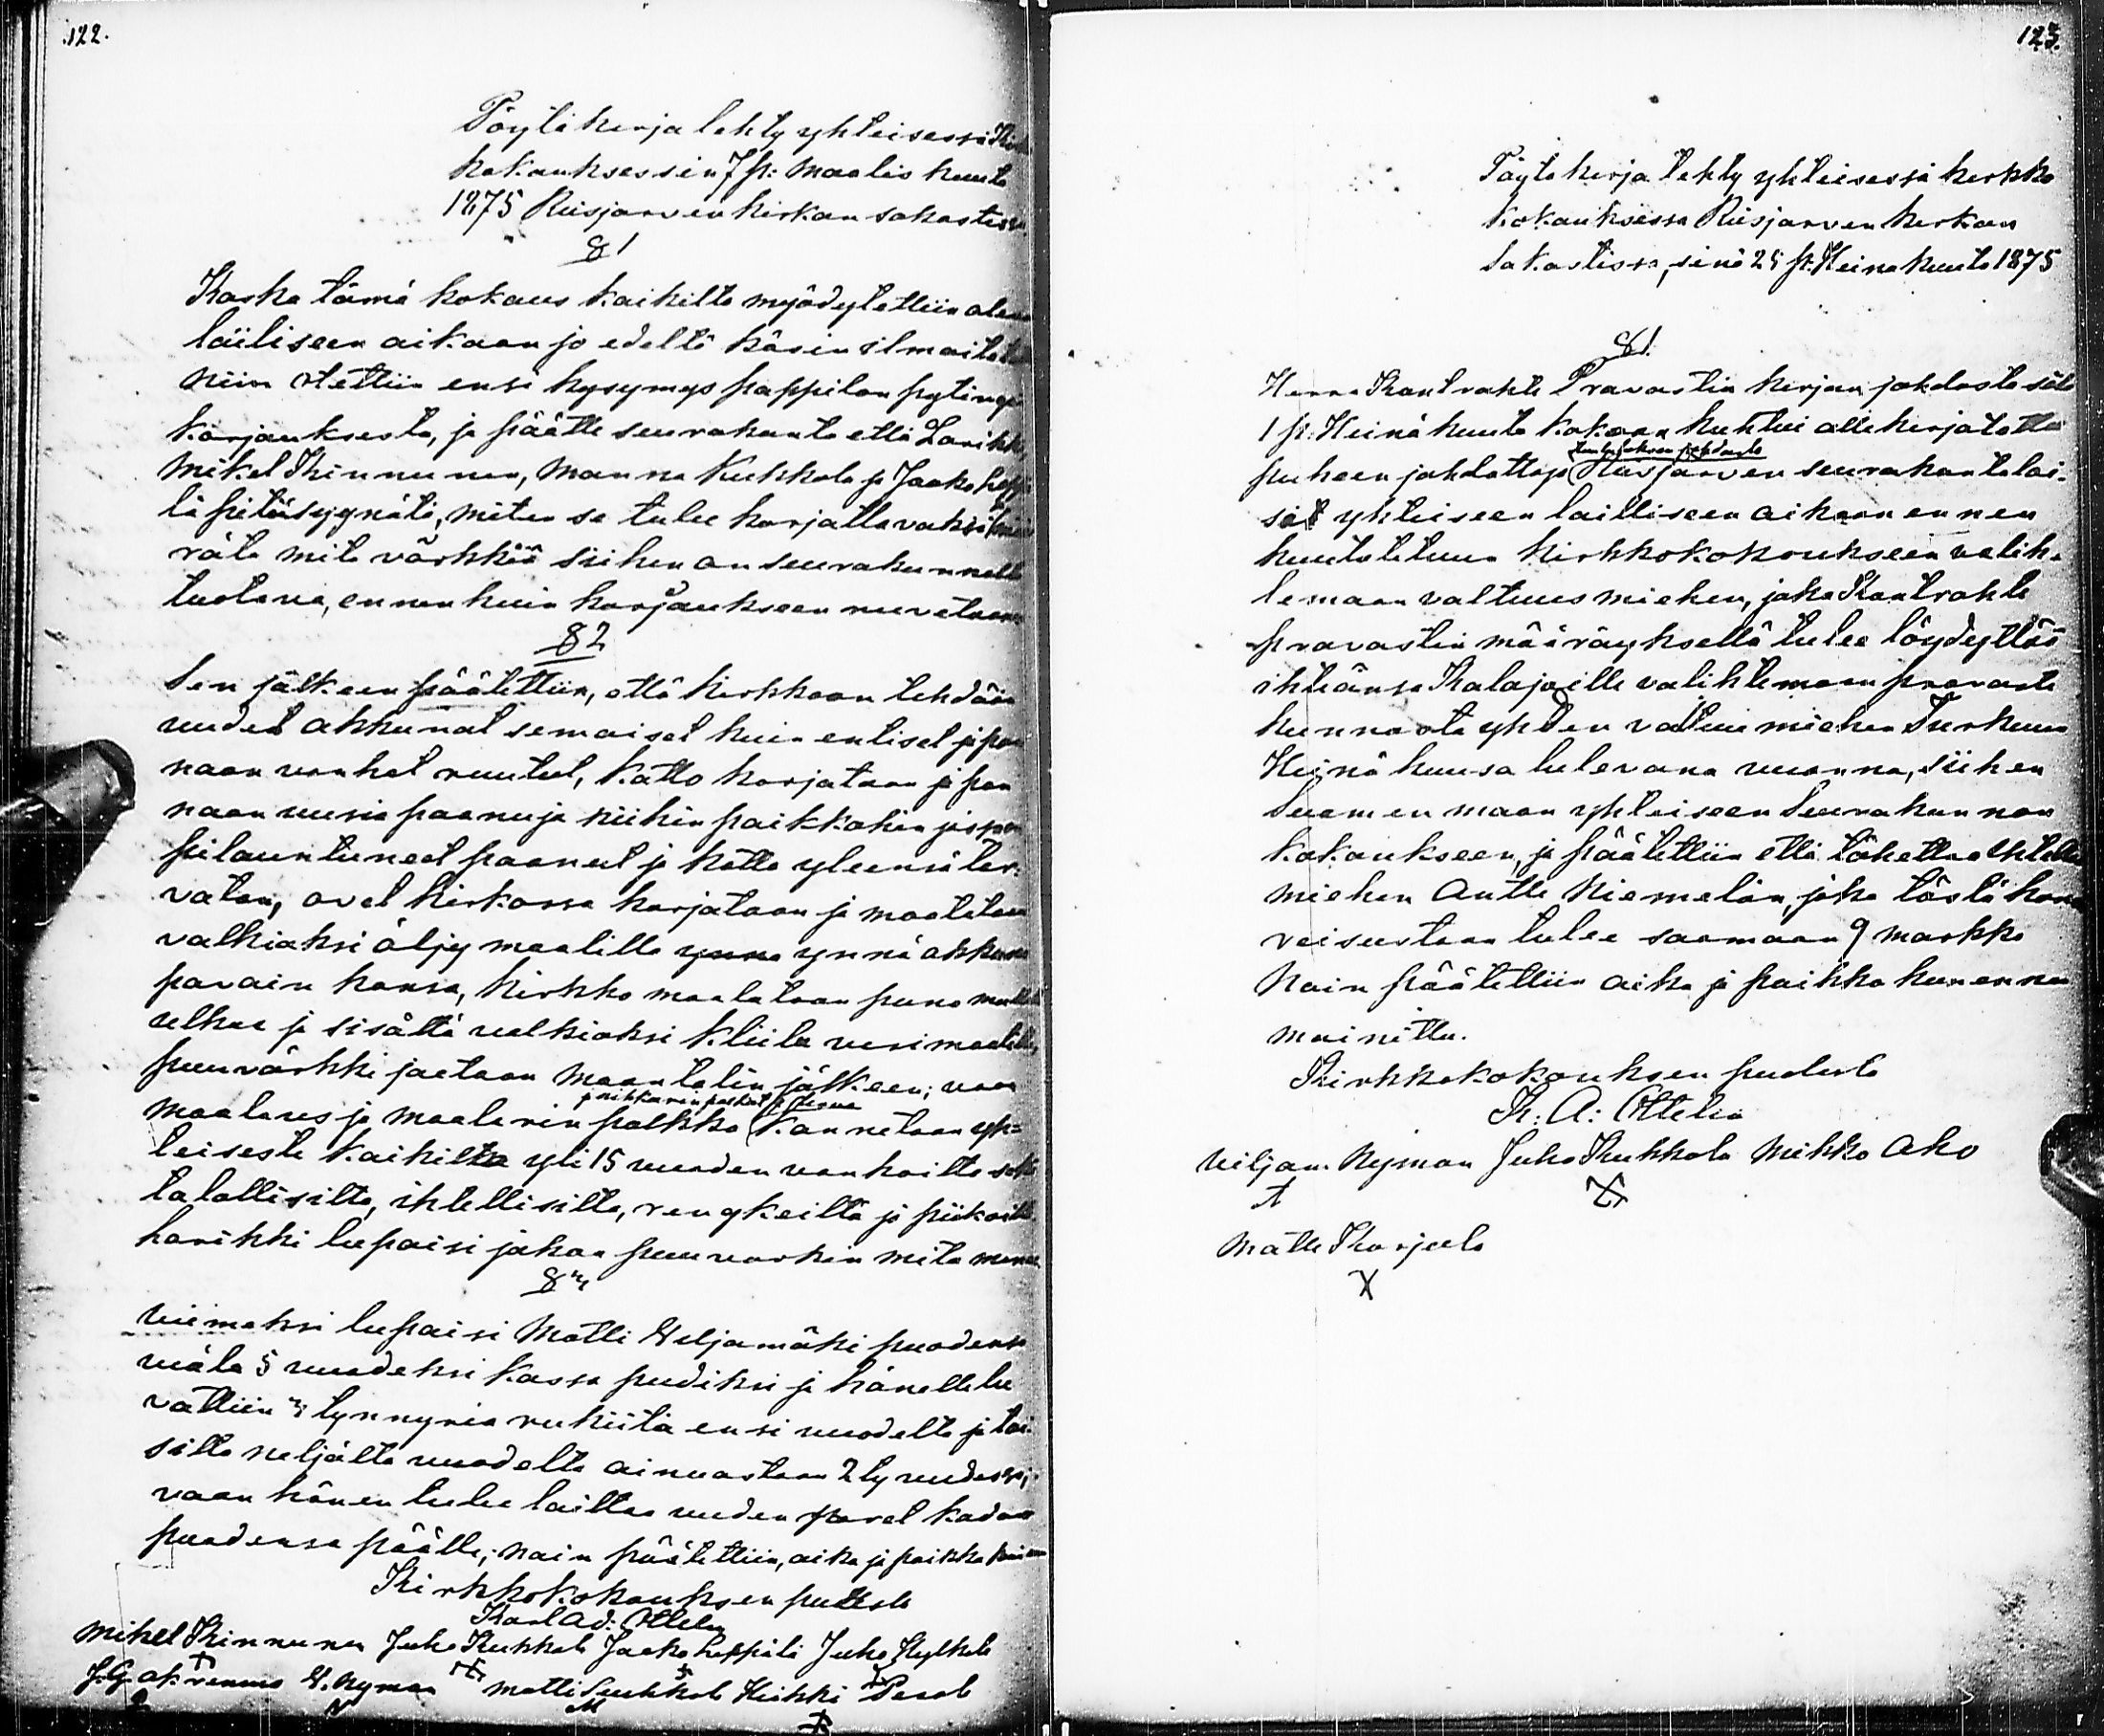 122.
Pöytä kirja tehty yhteisessä
kokouksessa sin 7 p: Maalis kuuta
1875 Reisjarven kirkon sakastissa
§ 1
Koska tämä kokous kaikilta myödytettiin olevan
lailiseen aikaan jo edeltä käsin ilmoitetuksi
niin otettiin ensi kysymys pappilan pytingin
korjauksesta, ja päätti seurakunta että Lanikka
Mikel Kinnunen, Manna Kukkola ja Jaako Leppi
lä pitää syynätä, miten se tulee korjattavaksi
rätä mitä värkkiä siihen on seurakunnalla
tuotava, ennen kuin korjaukseen ruvetaan
§ 2
Sen jälkeen päätettiin, että kirkkoon tehdään
uudet akkunat semaiset kuin entiset ja pan
naan vanhat ruutut, Katto korjataan ja pan
naan uusia paanuja niihin paikkohin joissa on
pilauntuneet paanut ja katto yleensä ter-
vataan, ovet kirkossa korjataan ja maalataan
valkiaksi öljy maalilla ynna ynnä akkuna
pavain kansa, kirkko maalataan puna mullalla
ulkoa ja sisältä valkiaksi kliila vesimaalilla
puuvärkki jaetaan Maantalin jälkeen; vaan
ja nikkarin palkat ja terva
maalaus ja maalarin palkka kannetaan yh=
teisesti kaikilta yli 15 vuoden vanhoilta sekä
talollisilta, ihtellisilta, rengkeiltä ja piikoilta
Lanikki lupaisi jakaa puuvarkin mitä menee
§ 3
viimeksi lupaisi Matti Weljamäki puodensa
viälä 5 vuodeksi kassa pudiksi ja hänelle lu
vattiin 3 tynnyriä rukiita ensi vuodelta ja toi-
silta neljältä vuodelta ainoastaan 2 ty vuodessa;
vaan hänen tulee laittaa uuden parel katon
puodensa päälle; näin päätettiin, aika ja paikka kuin ennen
Kirkkokokouksen puolesta
Karl Ad: Ottelin
Mikel Kinnunen Juho Kukkola Jaako Leppilä Juho Kylkola
W. Nyman Matti Heikki
123.
Pöytä kirja tehty yhteisessä kirkko
kokouksessa Reisjarven kirkon
Sakastissa, sinä 25 p. Heina kuuta 1875
§ 1.
Herra Kontrahti Pravastin kirjan johdosta siitä
1 p. Heinä kuuta kokoon kuhtui allekirjotettu
Kuulutuksen johdosta
puheen johdattaja Reisjarven seurakuntalai-
sit yhteiseen lailliseen aikaan ennen
kuulutettuun kirkkokokoukseen valih-
temaan valtuus miehen, joka Kontrahti
pravastin määräyksellä tulee löydyttää
ihteänsä Kalajoille valihtemaan pravasti
kunnasta yhden valtuu miehen Turkuun
Heinä kuusa tulevana vuonna, siihen
Suomen maan yhteiseen Seurakunnan
kokoukseen, ja päätettiin että lähettaa
miehen Antti Niemelän, joka tästä
vaisustaan tulee saamaan 9 markka
Nain päätettiin aika ja paikka kun ennen
mainittu.
Kirkkokokouksen puolesta
K: A: Ottelin
Viljam Nyman Juho Kukkola Mikko Aho
Matti Karjula